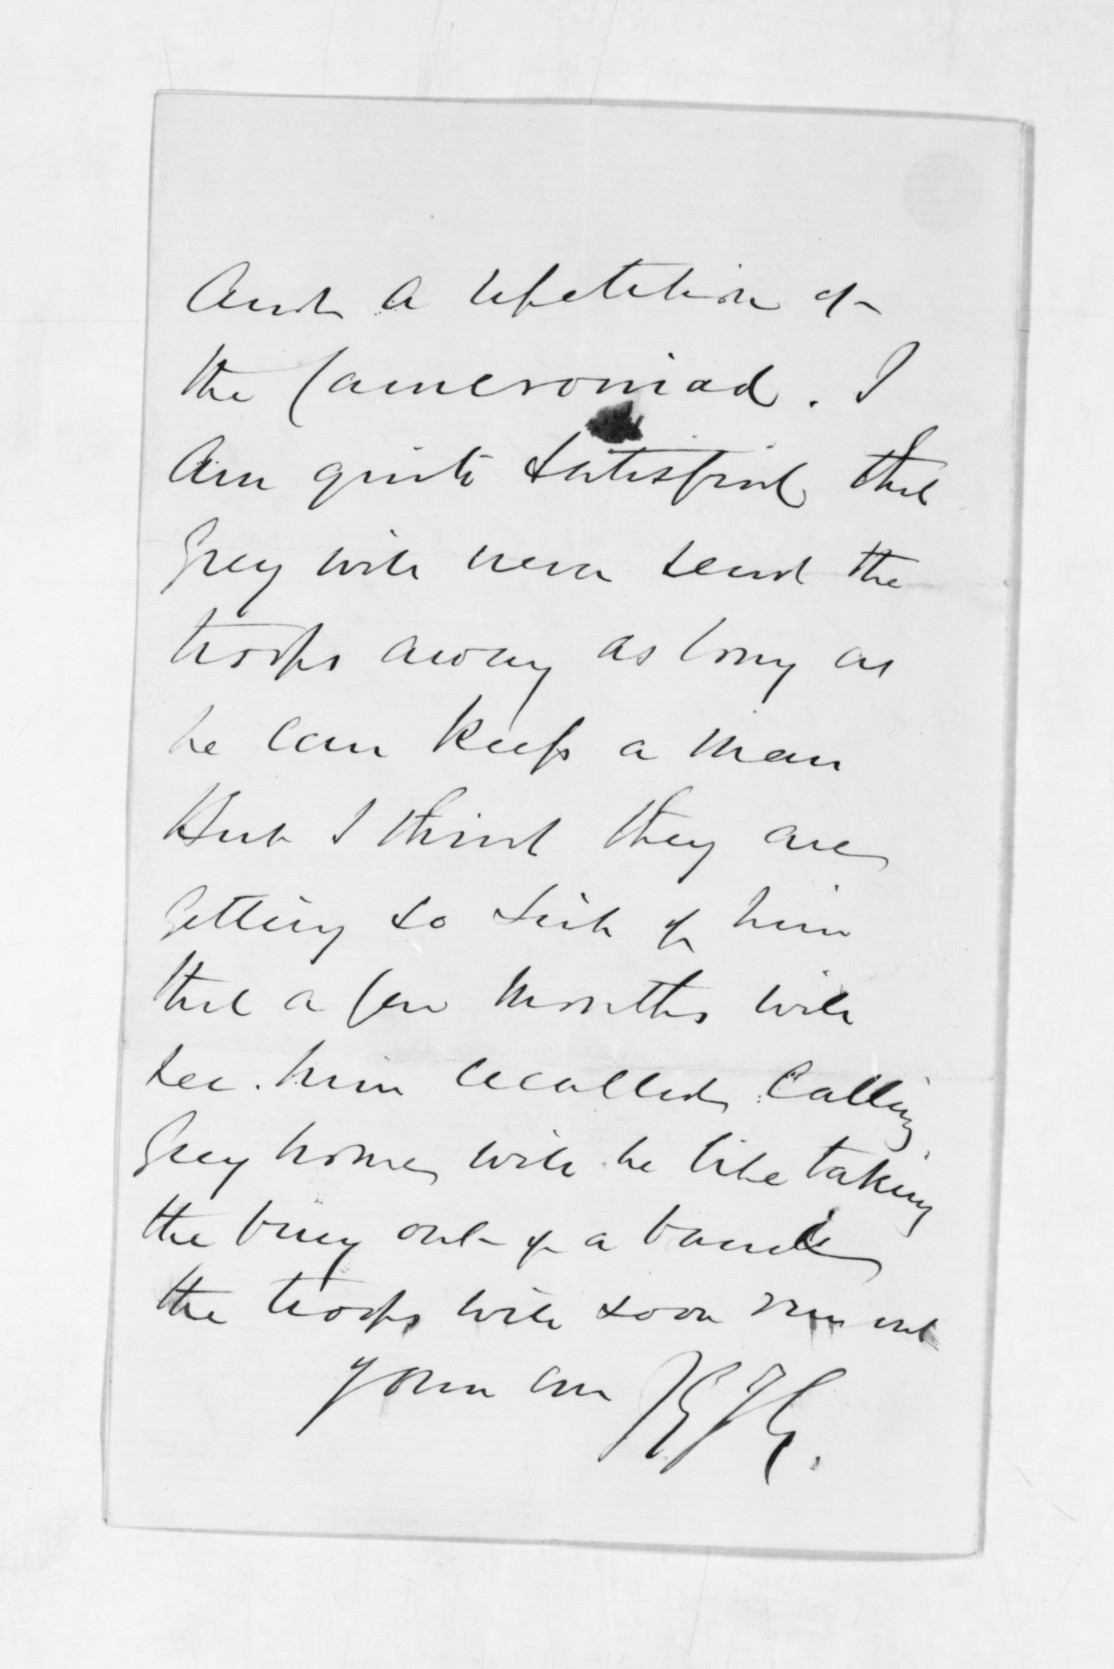 And a repetition of
the Cameroniad. I
am quite satisfied that
Grey will never send the
troops away as long as
he can keep a man
But I think they are
getting so sick of him
that a few months will
see him recalled. Calling
Grey home will be like taking
the bung out of a barrel
the troops will soon run out
yours am